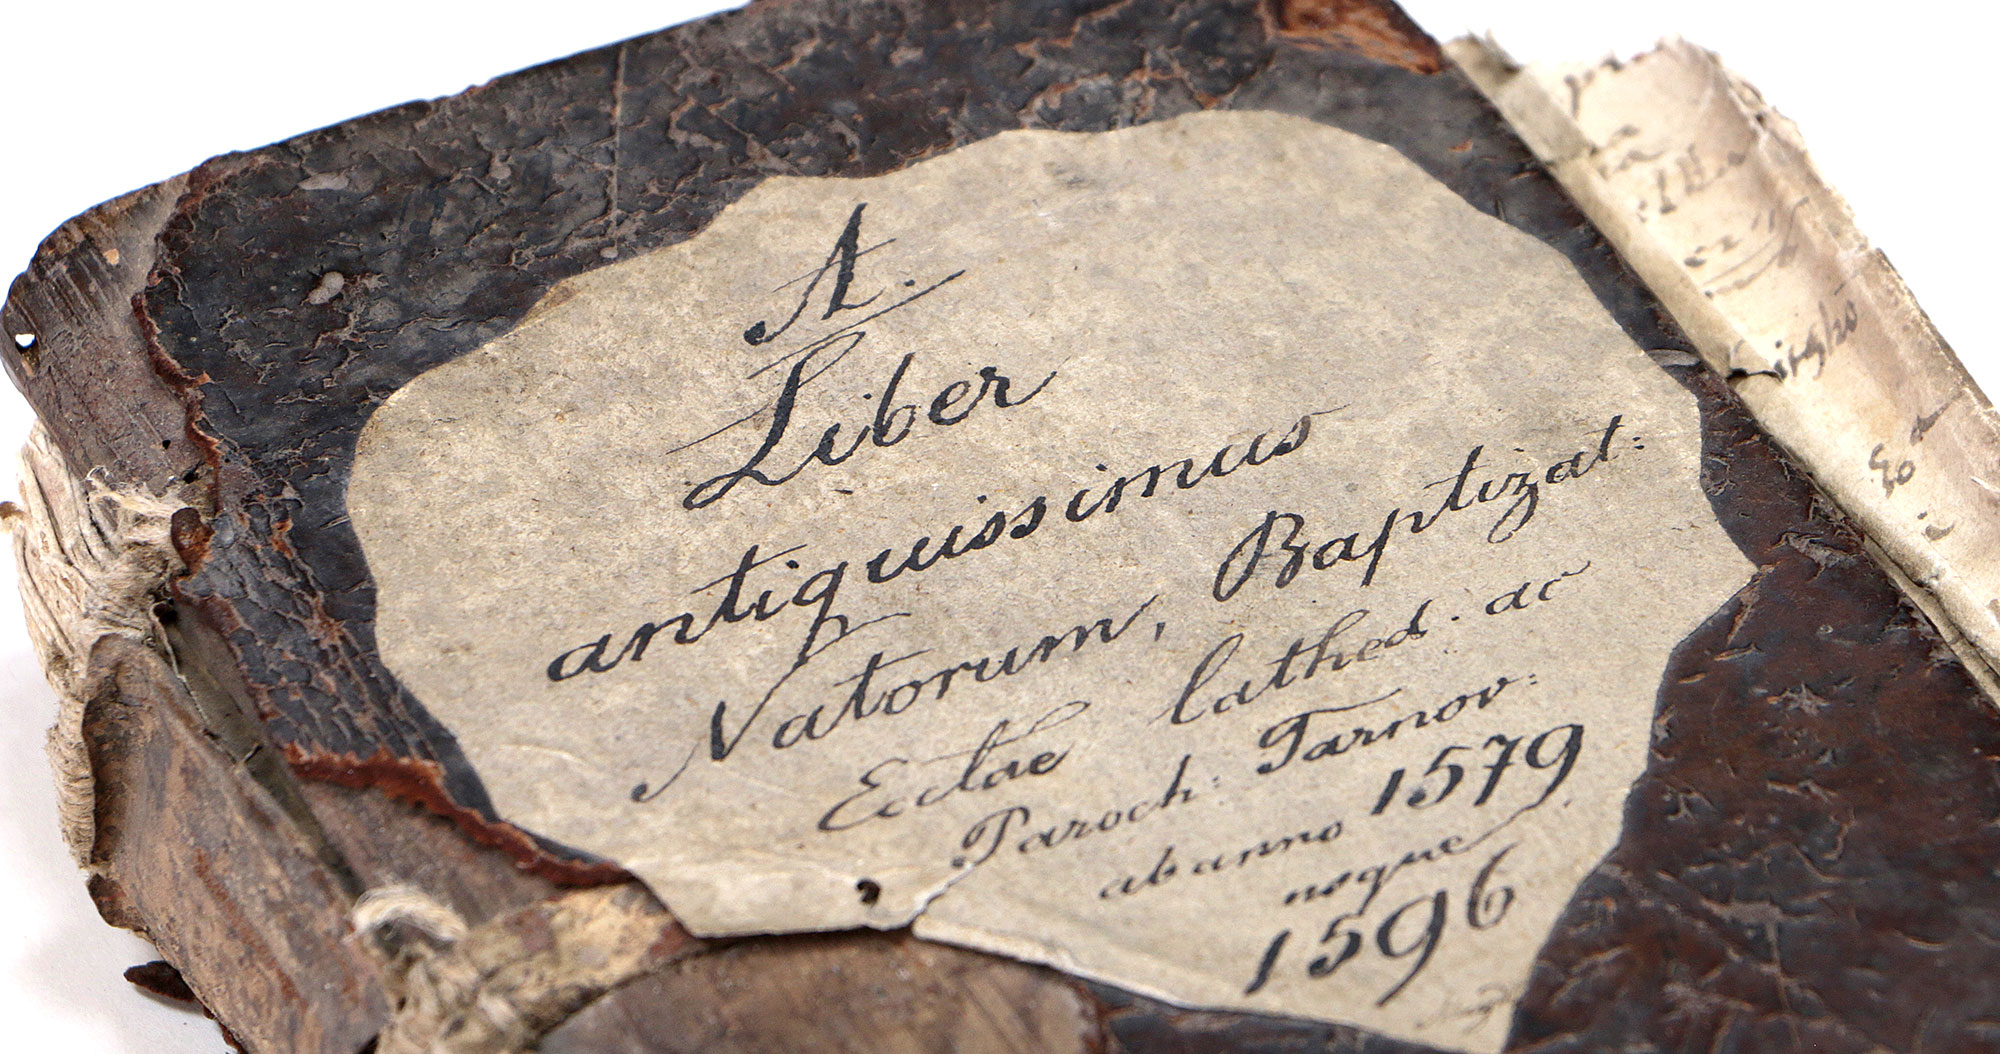 A.
Liber
antiquissimus
Natorum, Baptizat:
Ecclae Cathed. ac
Paroch: Tarnov:
ab anno 1579
usque
1596